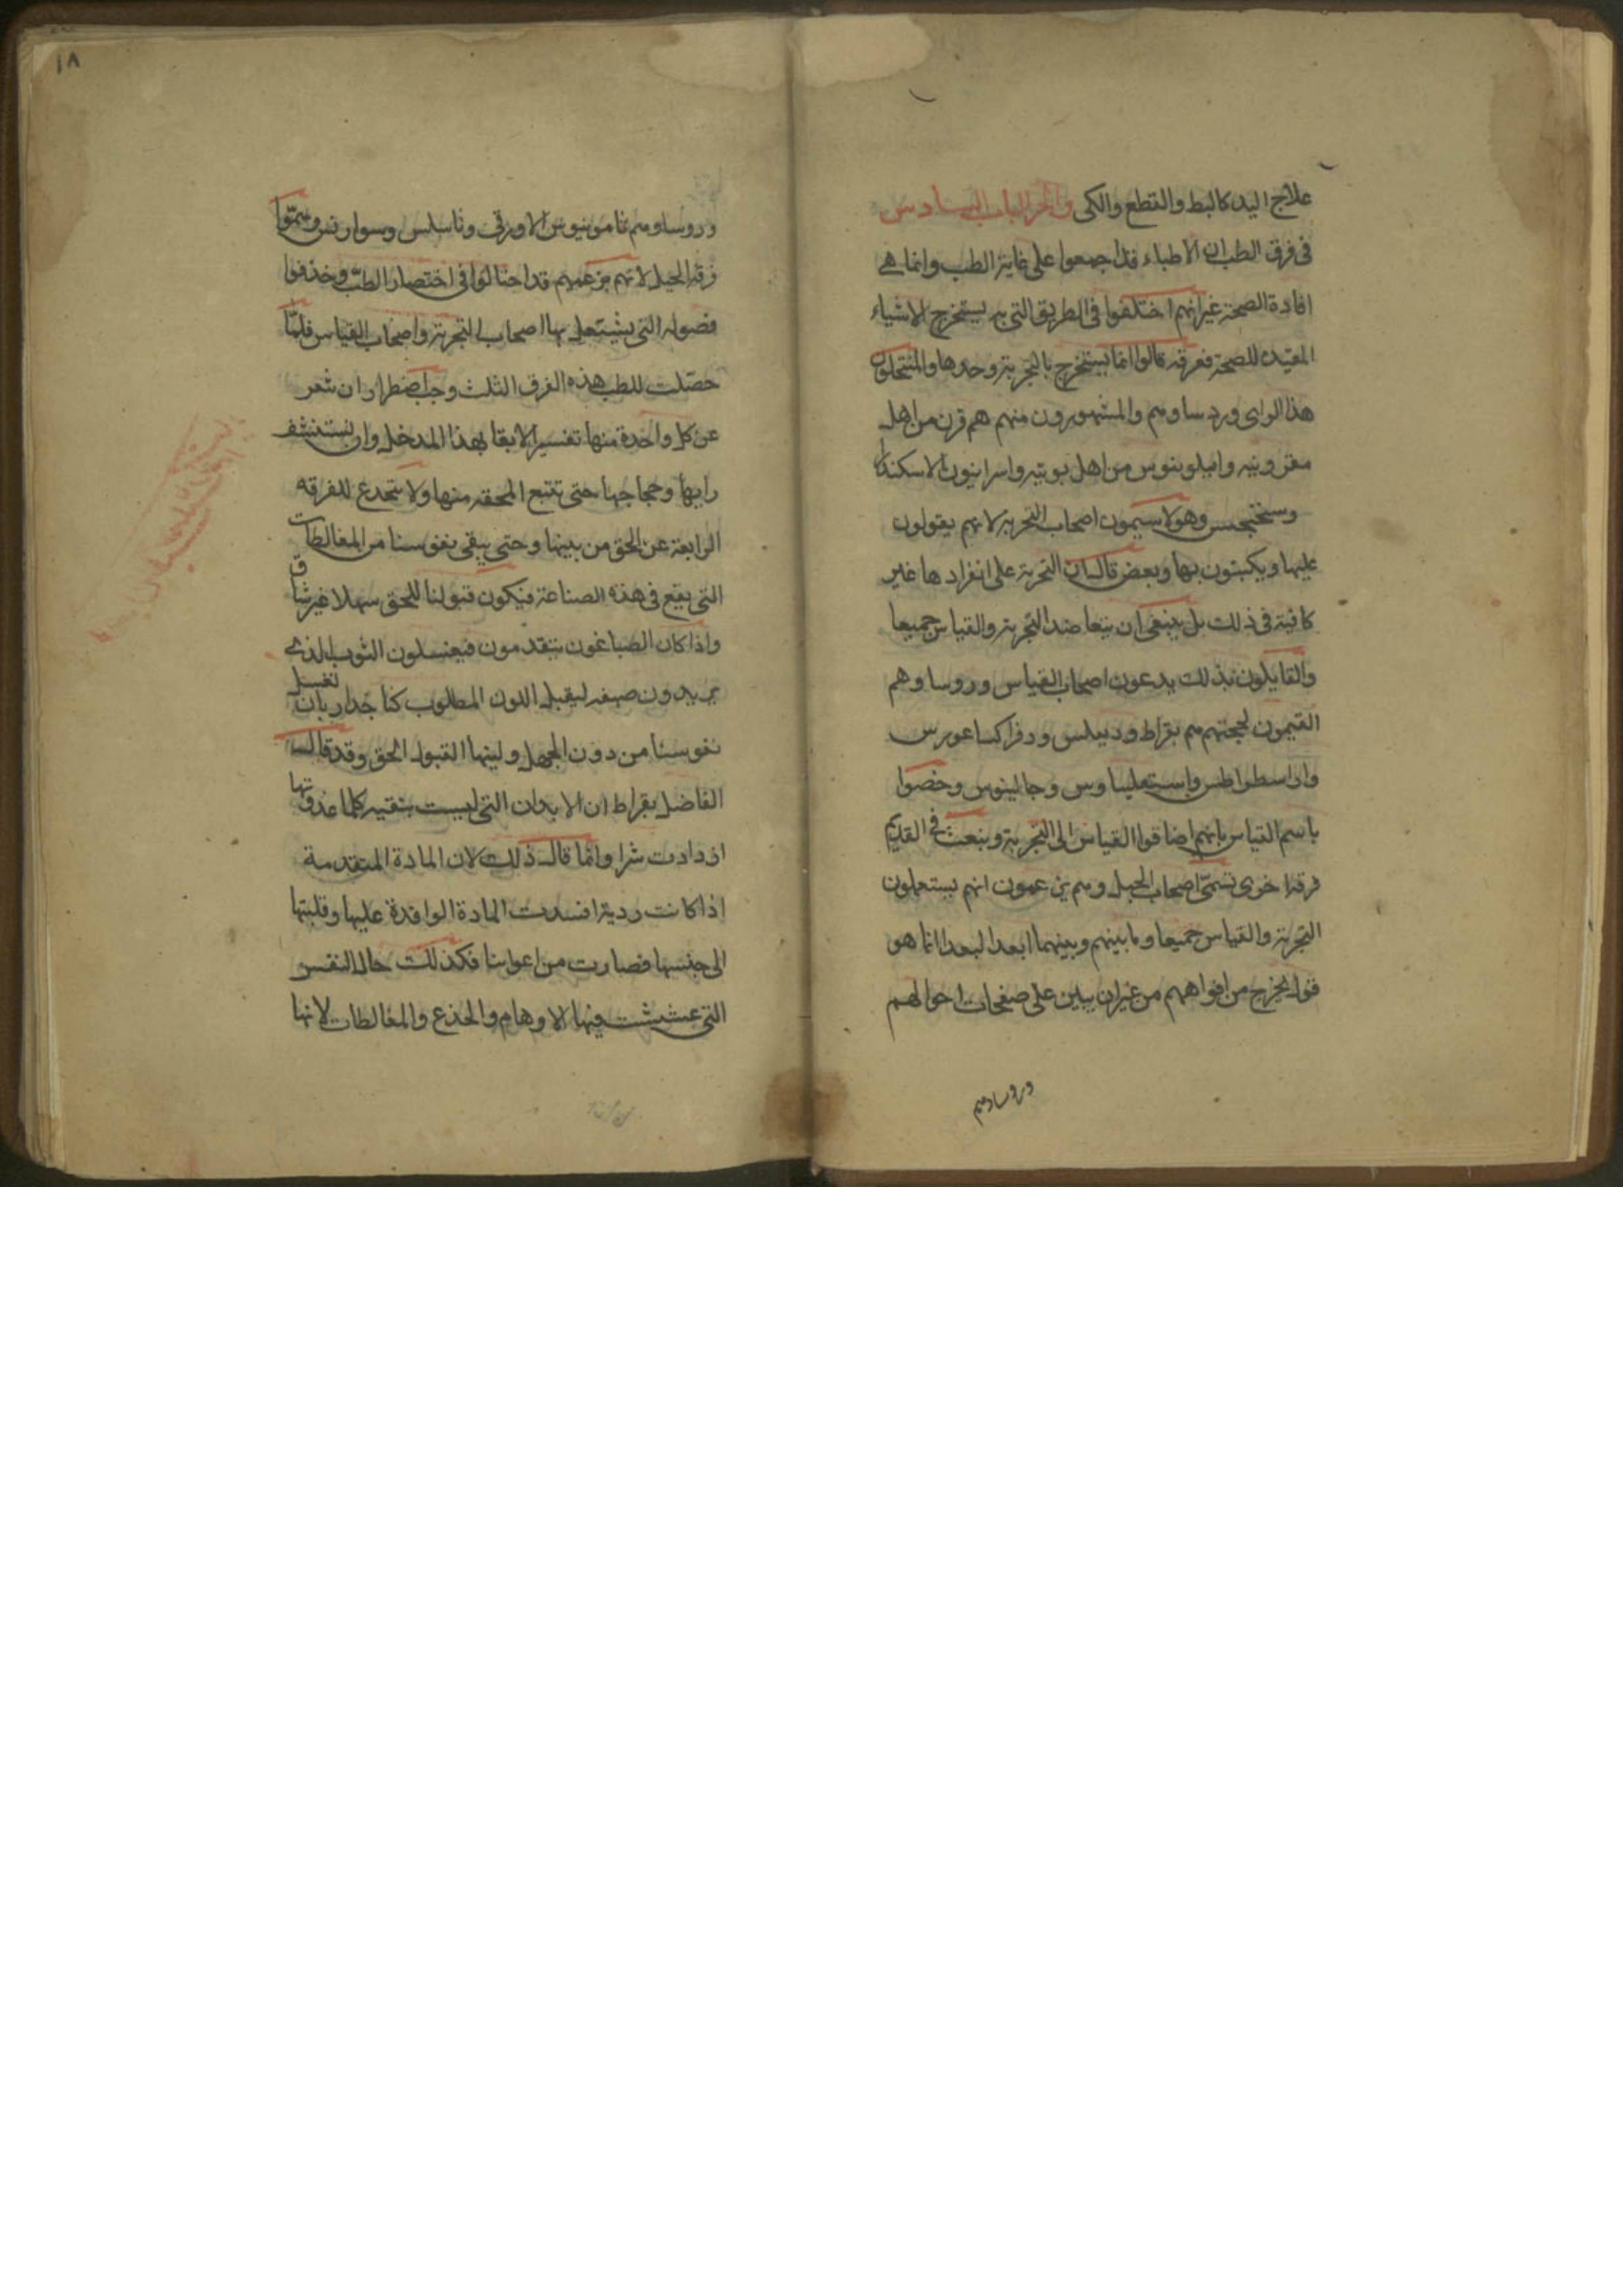 علاج اليد كالبط والقطع والكى والخر الباب السادس
فى فرق الطب ان الاطباء قد اجمعوا على غاية الطب وانما هى
افادة الصحة غير انهم اختلفوا فى الطريق التى به يستخرج الاشياء
المفيدة للصحة ففرقه قالوا انما يستخرج بالتجربة وحدها والمنتحلون
هذا الراى وردساوهم والمشهورون منهم هم قرن من اهل
وهولا سيمون اصحاب التجربه لانهم يقولون
عليها ويكبتون بها وبعض قال ان التجربة على انفرادها غير
كافية فى ذلك بل ينبغى ان يتعاضد التجربة والقياس جميعا
والقايلون بذلك يدعون اصحاب القياس وروساوهم
القيمون لحجتهم هم بقراط وديبلس ودفراكساعورس
وجالينوس وخصوا
باسم القياس بانهم اضافوا القياس الى التجربة وبنعت فى القديم
فرقة اخرى تسمى اصحاب الحيل وهم يزعمون انهم يستعملون
التجربة والقياس جميعا وما بينهم وبينهما ابعد البعد انما هو
قول يخرج من افواههم من غير ان يبين على صفحات احوالهم
وروساوهم
١٨
وروساوهم ثامونيوس الاورقى وثاسلس وسوارنس وسموا
فرقة الحيل لانهم بزعمهم قد احتالوا فى اختصار الطب وحذفوا
فصوله التى يشتعل بها اصحاب التجربة واصحاب القياس فلما
حصلت للطب هذه الفرق الثلث وجب اضطرارا ان نعر
عن كل واحدة منها تفسيرا لايقا بهذا المدخل وان نستشف
رايها وحجاجها حتى نتبع المحقه منها ولا نتخدع للفرقه
الرايغة عن الحق من بينها وحتى يبقى نفوسنا من المغالطات
التى يقع فى هذه الصناعة فيكون قبولنا للحق سهلا غير شاق
واذا كان الصباغون يتقدمون فيغسلون الثوب الذى
يريدون صبغه ليقبل اللون المطلوب كنا جدار بان نغسل
نفوسنا من دون الجهل ولينها القبول الحق وقد قال
الفاضل بقراط ان الابدان التى ليست بنقيه كلما غذوتها
ازدادت شرا وانما قال ذلك لان المادة المتقدمة
اذا كانت ردية افسدت المادة الوافدة عليها وقلبتها
الى جنسها فصارت من اعوانها فكذلك حال النفس
التى عششت فيها الاوهام والخذع والمغالطات لانها